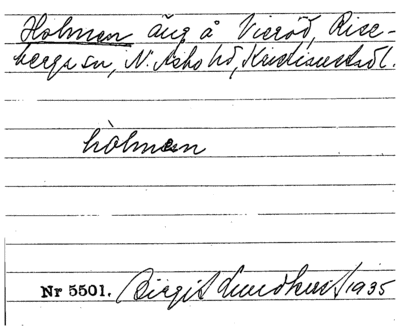 Holmen äng å Vieröd, Rise-
berga sn, N. Åsbo hd, Kristianst. l.
hòlmen
Nr 5501. Birgit Lundkvist 1935